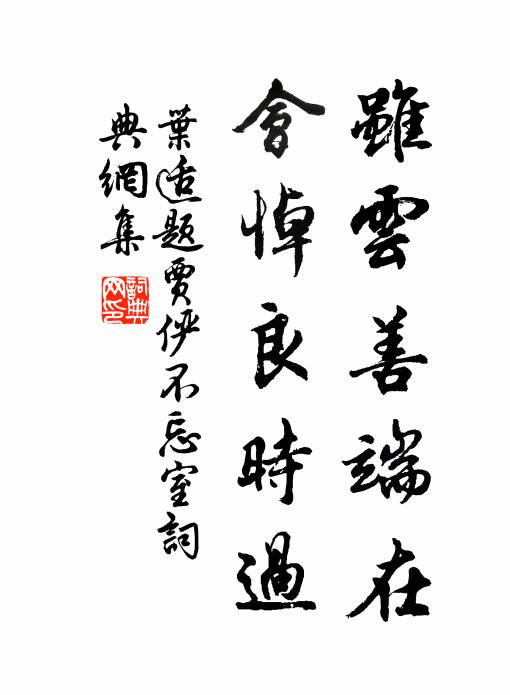 雖雲善端在
會悼良時過
葉适題賈俨不忘室詞
典網集
詞典
网印